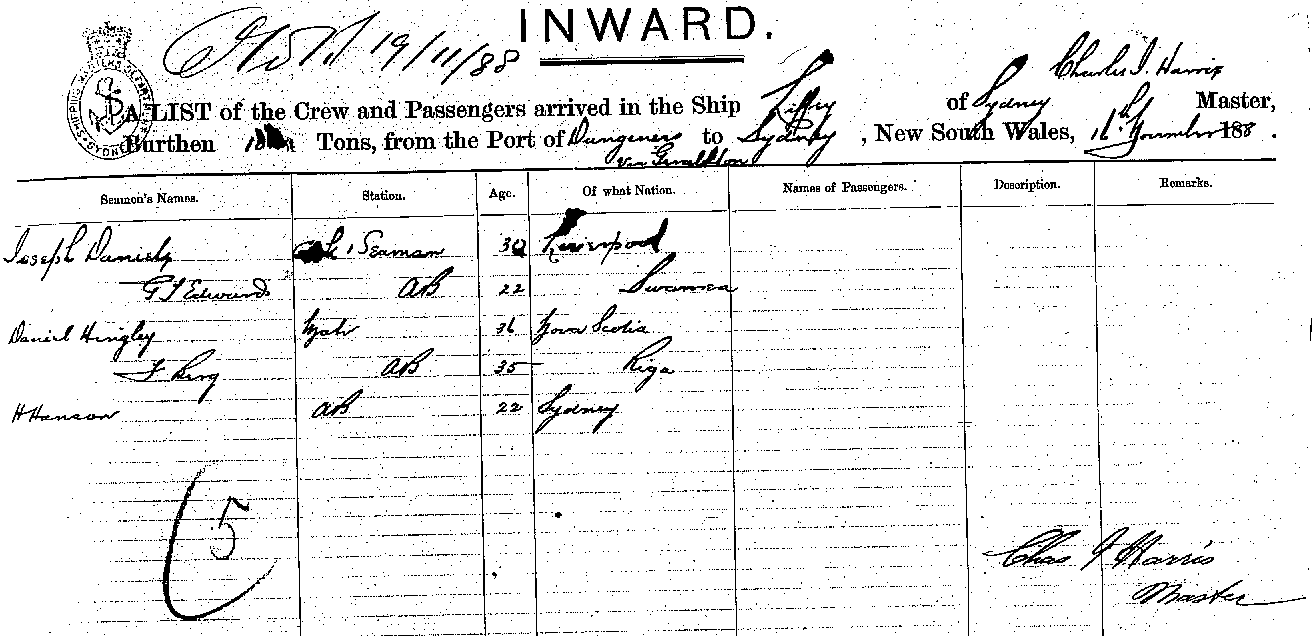 INWARD.
19/11/88
SHIPPING MASTERS DEPARTMENT SYDNEY
Charles J. Harris
A LIST of the Crew and Passengers arrived in the Ship of Sydney Master,
Burthen Tons, from the Port of Dungeness to Sydney, New South Wales, 188 .
Via
Seamen's Names. Station. Age. Of what Nation. Names of Passengers. Description. Remarks.
Joseph Daniels Seaman 30 Liverpool
G J Edwards AB 22 Swansea
Daniel Hingley Mate 36 Nova Scotia
AB 35 Riga
H Hanson AB 22 Sydney
5
Chas J Harris
Master